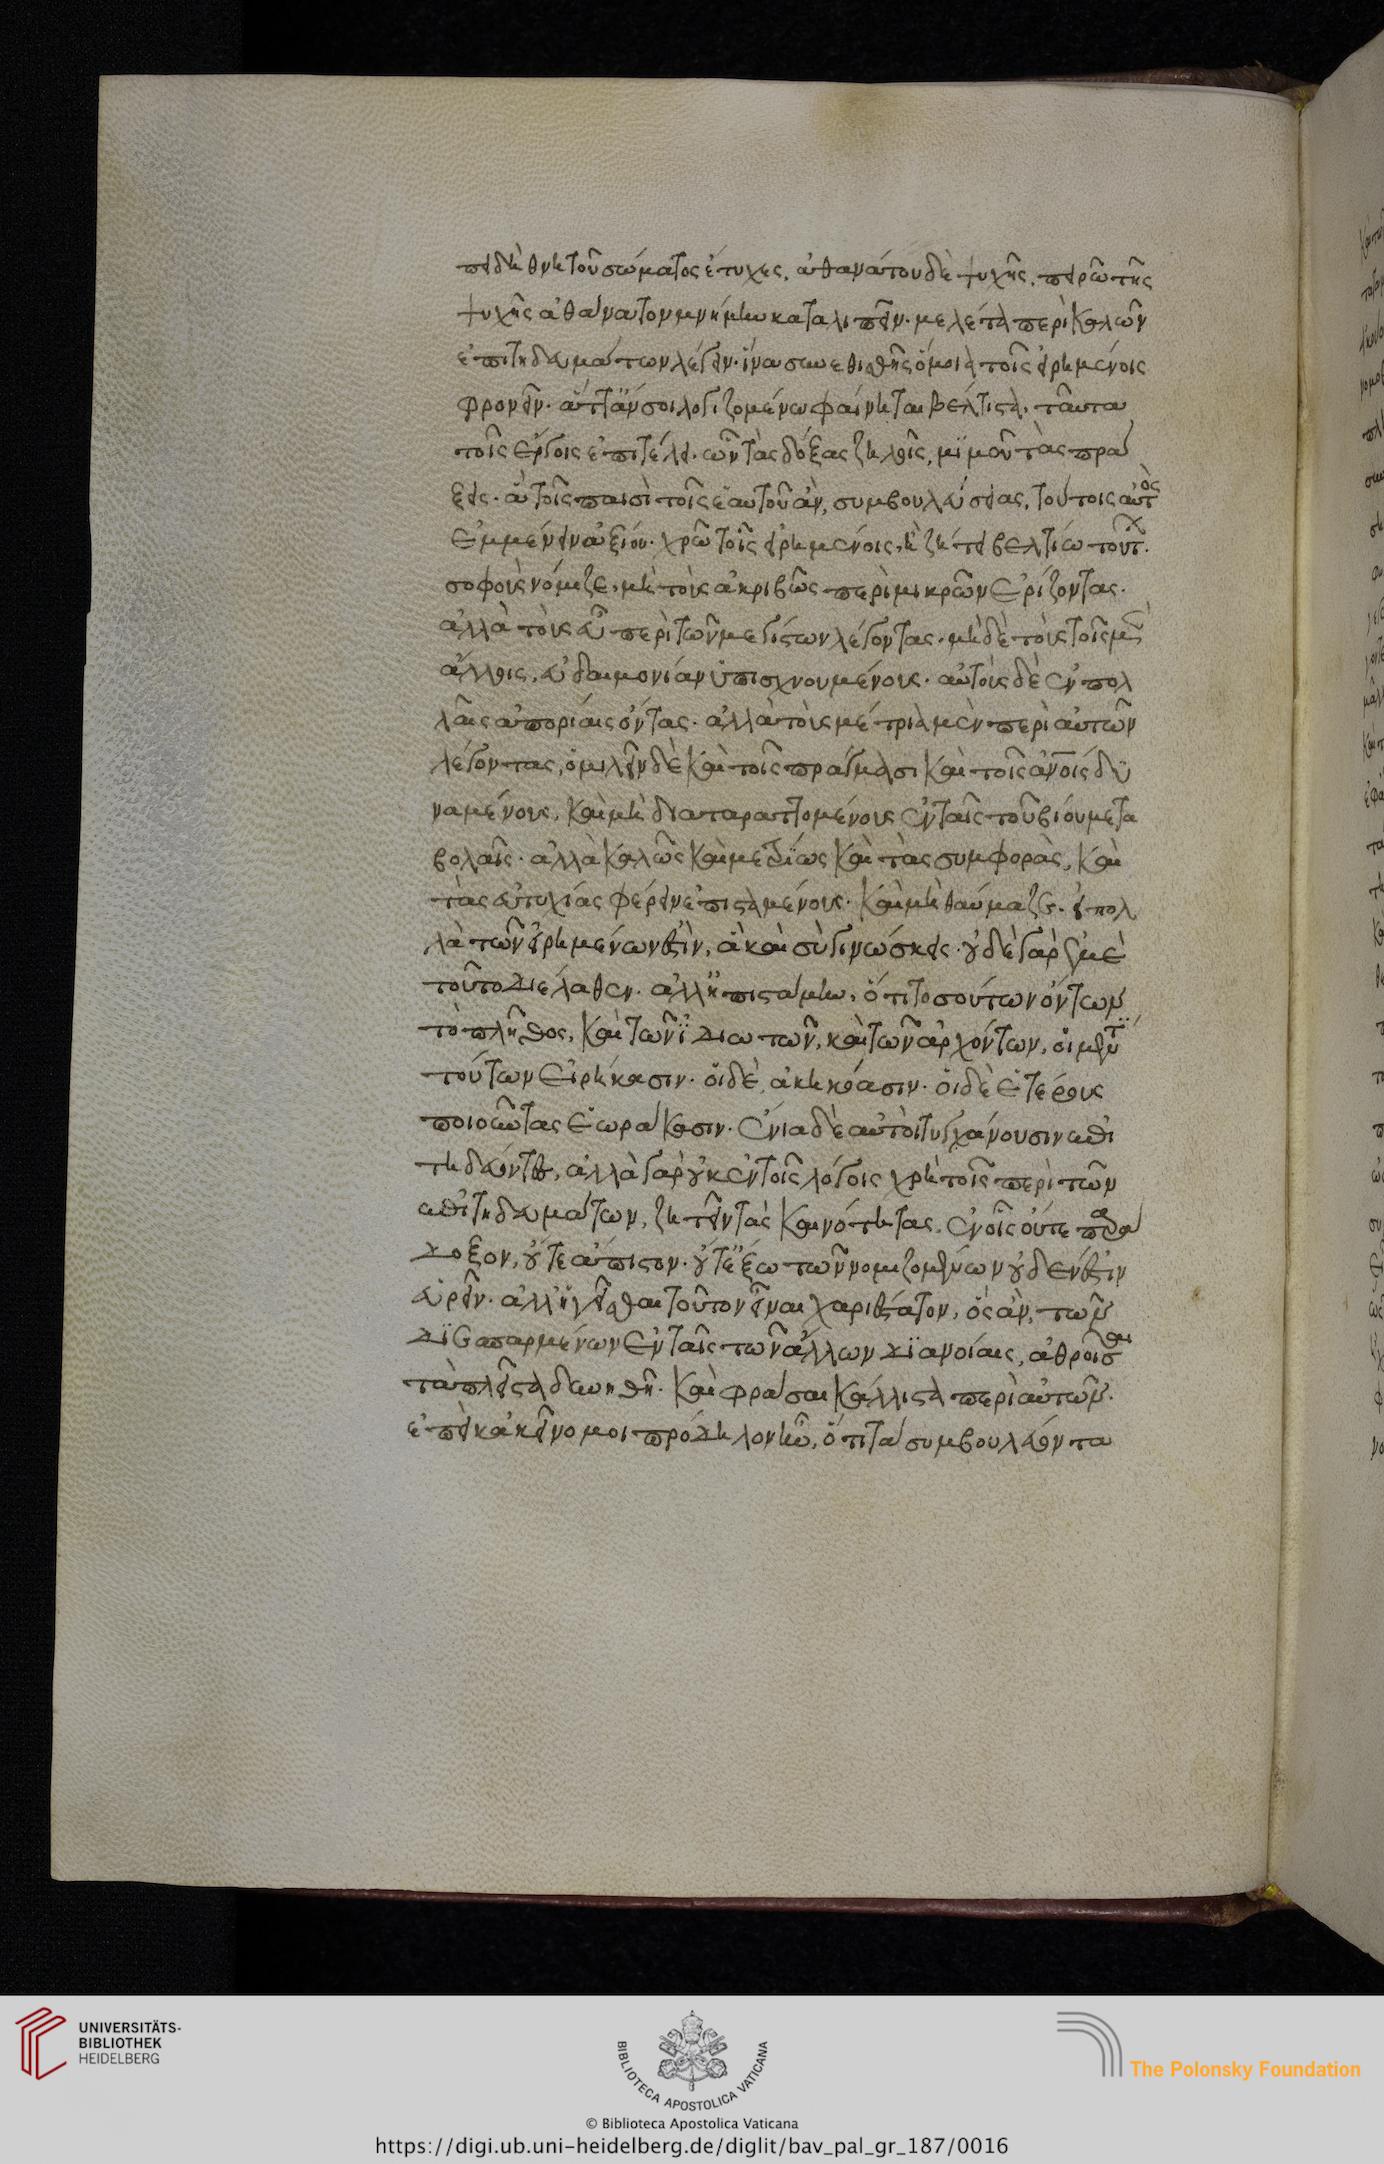 πειδὴ θνητοῦ σώματος ἔτυχες, ἀθανάτου δὲ ψυχῆς, πειρῶ τῆς
ψυχῆς ἀθάνατον μνήμην καταλιπεῖν. μελέτα περὶ καλῶν
ἐπιτηδευμάτων λέγειν. ἵνα συνεθισθῇς ὅμοια τοῖς εἰρημένοις
φρονεῖν. ἅττ' ἄν σοι λογιζομένω φαίνηται βέλτιστα, ταῦτα
τοῖς ἔργοις ἐπιτέλει. ὧν τὰς δόξας ζηλοῖς, μιμοῦ τὰς πρά
ξεις. ἃ τοῖς παισὶ τοῖς ἑαυτοῦ ἂν, συμβουλεύσειας, τούτοις αὐτὸς
ἐμμένειν ἀξίου. χρῶ τοῖς εἰρημένοις, ἢ ζήτει βελτίω τούτ.
σοφοὺς νόμιζε, μὴ τοὺς ἀκριβῶς περὶ μικρῶν ἐρίζοντας.
ἀλλὰ τοὺς εὖ περὶ τῶν μεγίστων λέγοντας. μὴ δὲ τοὺς τοῖς μὲν
ἄλλοις, εὐδαιμονίαν ὑπισχνουμένους. αὐτοὺς δὲ ἐν πολ
λαῖς ἀπορίαις ὄντας. ἀλλὰ τοὺς μέτρια μὲν περὶ αὐτῶν
λέγοντας, ὁμιλεῖν δὲ καὶ τοῖς πράγμασι καὶ τοῖς ἀνοις δυ
ναμένους, καὶ μὴ διαταραττομένους ἐν ταῖς τοῦ βίου μετα
βολαῖς. ἀλλὰ καλῶς καὶ μετρίως καὶ τὰς συμφορὰς, καὶ
τὰς εὐτυχίας φέρειν ἐπισταμένους. καὶ μὴ θαύμαζε. εἰ πολ
λὰ τῶν εἰρημένων ἐστὶν, ἃ καὶ σὺ γινώσκεις. οὐδὲ γὰρ ἐμὲ
τοῦτο διέλαθεν. ἀλλ' ἠπιστάμην, ὅτι τοσούτων ὄντων
τὸ πλῆθος, καὶ τῶν ἰδιωτῶν, καὶ τῶν ἀρχόντων, οἱ μέν τι
τούτων εἰρήκασιν. οἱ δὲ, ἀκηκόασιν. οἱ δὲ ἑτέρους
ποιοῦντας ἑωράκασιν. ἔνια δὲ αὐτοὶ τυγχάνουσιν ἐπι
τηδεύοντες, ἀλλὰ γὰρ οὐκ ἐν τοῖς λόγοις χρὴ τοῖς περὶ τῶν
ἐπιτηδευμάτων, ζητεῖν τὰς καινότητας. ἐν οἷς οὔτε παρά
δοξον, οὔτε ἄπιστον. οὔτ' ἔξω τῶν νομιζομένων οὐδέν ἐστιν
εὑρεῖν. ἀλλ' ἡγεῖσθαι τοῦτον εἶναι χαριέστατον, ὃς ἂν, τῶν
διεσπαρμένων ἐν ταῖς τῶν ἄλλων διανοίαις, ἀθροῖσαι
τὰ πλεῖστα δυνηθῇ. καὶ φράσαι κάλλιστα περὶ αὐτῶν.
ἐπεὶ κἀκεῖνό μοι πρόδηλον ἦν, ὅτι τὰ συμβουλεύοντα
UNIVERSITÄTS-
BIBLIOTHEK
HEIDELBERG
BIBLIOTECA APOSTOLICA VATICANA
The Polonsky Foundation
© Biblioteca Apostolica Vaticana
https://digi.ub.uni-heidelberg.de/diglit/bav_pal_gr_187/0016